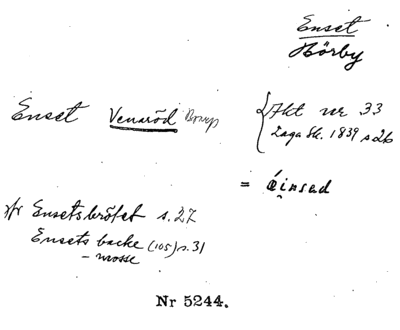 Enset
Hörby
Enset Venaröd
Akt nr 33
Laga Sk. 1839 s 26
= éinsad
Ensetsbrötet s. 27
Ensets backe (105) s. 31
– mosse
Nr 5244.